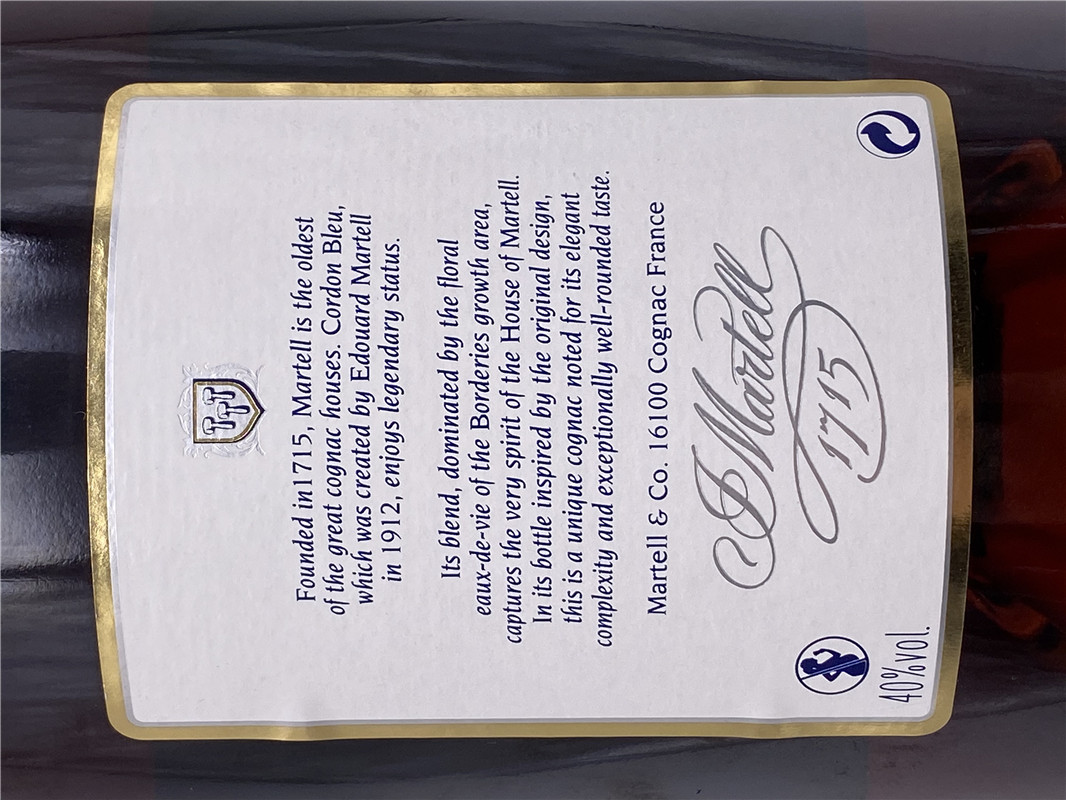 Founded in 1715, Martell is the oldest
of the great cognac houses. Cordon Bleu,
which was created by Edouard Martell
in 1912, enjoys legendary status.
Its blend, dominated by the floral
eaux-de-vie of the Borderies growth area,
captures the very spirit of the House of Martell.
In its bottle inspired by the original design,
this is a unique cognac noted for its elegant
complexity and exceptionally well-rounded taste.
Martell & Co. 16100 Cognac France
J Martell
1715
40%vol.